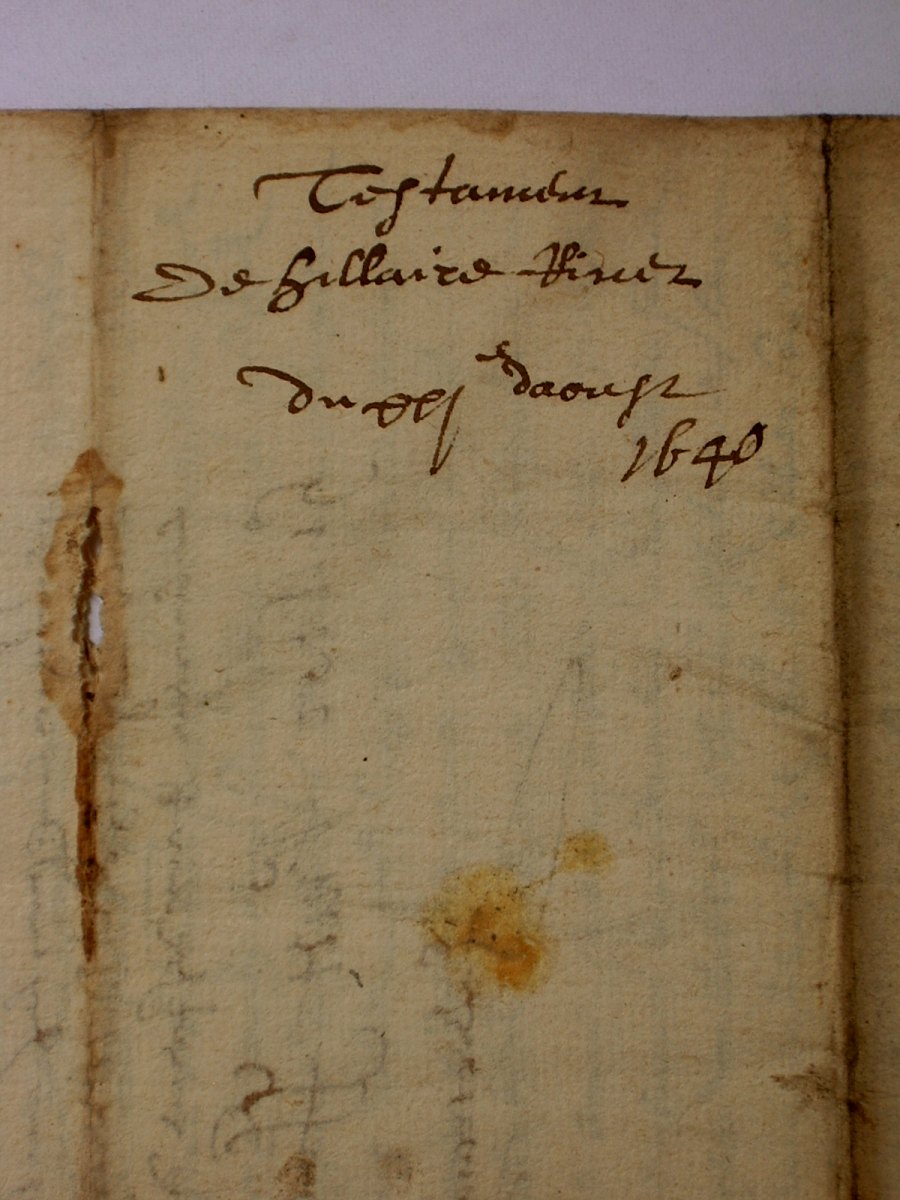 Testament
De hillaire Rivet
du xxj e daoust
1640